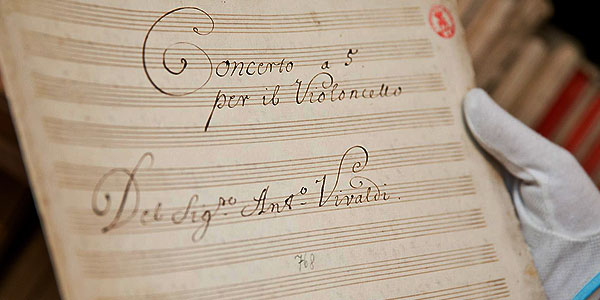 Concerto a 5.
per il Violoncello
Del Sig.ro Ant.o Vivaldi.
768